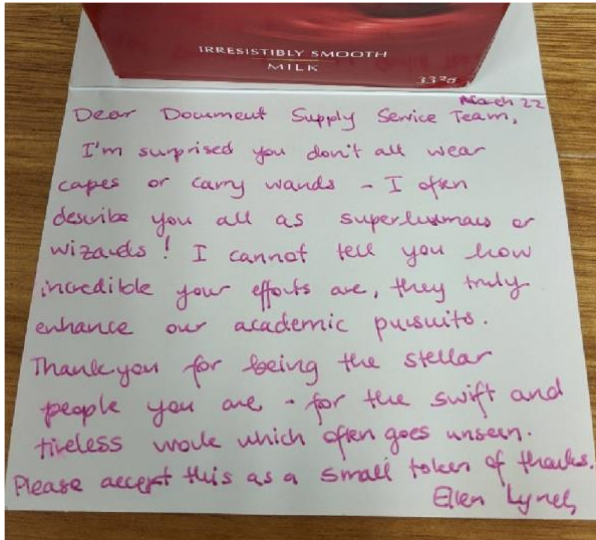 IRRESISTIBLY SMOOTH
MILK
332g
March 22
Dear Document Supply Service Team,
I'm surprised you don't all wear
capes or carry wands - I often
describe you all as superhumans or
wizards! I cannot tell you how
incredible your efforts are, they truly
enhance our academic pursuits.
Thank you for being the stellar
people you are - for the swift and
tireless work which often goes unseen.
Please accept this as a small token of thanks.
Ellen Lynch